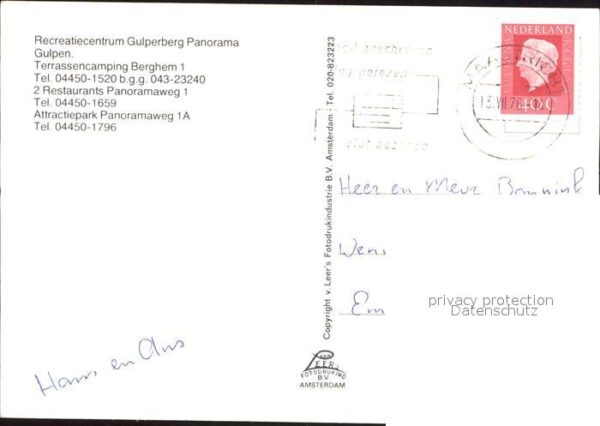 Recreatiecentrum Gulperberg Panorama
Gulpen.
Terrassencamping Berghem 1
Tel. 04450-1520 b.g.g. 043-23240
2 Restaurants Panoramaweg 1
Tel. 04450-1659
Attractiepark Panoramaweg 1A
Tel. 04450-1796
Hans en Ans
Copyright v. Leer's Fotodrukindustrie B.V. Amsterdam - Tel. 020-823223
VAN
LEER'S
FOTODRUKIND
B.V.
AMSTERDAM
geschreven
gelezen
NEDERLAND
40C
MAASTRICHT
13.VII.76
Heer en Mevr
Wens
Em
privacy protection
Datenschutz